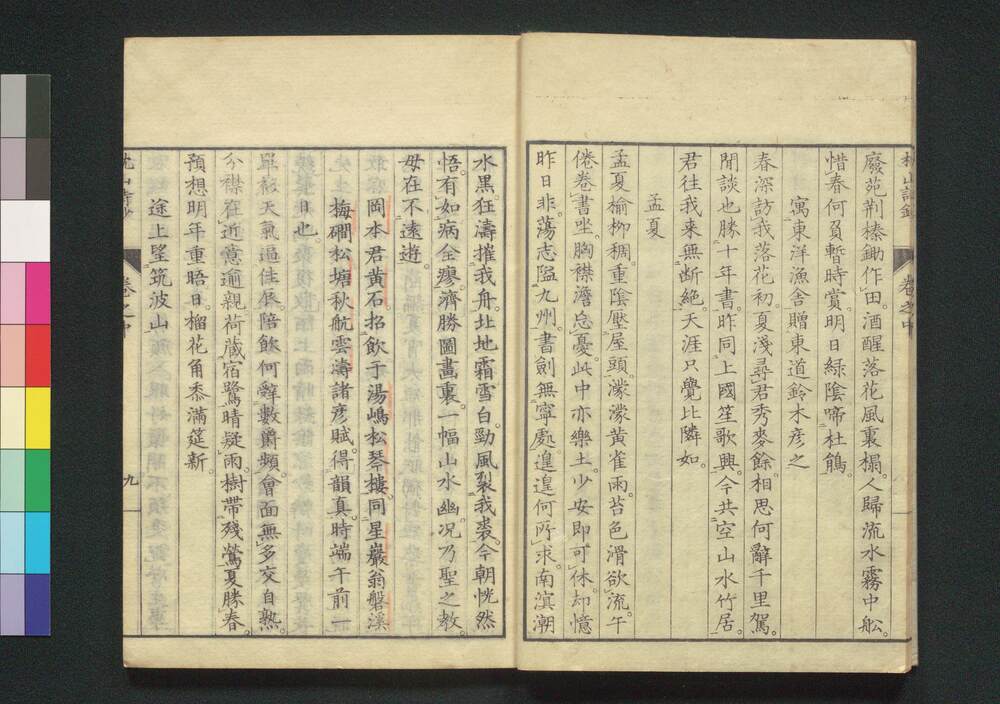 枕山詩鈔　卷之中
廢苑荆榛鋤作田。酒醒落花風裏榻。人歸流水霧中舩。
惜春何負暫時賞。明日緑陰啼杜鵑。
寓東洋漁舎贈東道鈴木彦之
春深訪我落花初。夏淺尋君秀麥餘。相思何辭千里駕。
閒談也勝十年書。昨同上國笙歌興。今共空山水竹居。
君往我來無斷絶。天涯只覺比隣如。
孟夏
孟夏榆柳稠。重陰壓屋頭。濛濛黄雀雨。苔色滑欲流。午
倦卷書坐。胸襟澹㤀憂。此中亦樂土。少安即可休。却憶
昨日非。蕩志隘九州。書劍無寧處。遑遑何所求。南滇潮
水黒。狂濤摧我舟。北地霜雪白。勁風裂我裘。今朝恍然
悟。有如病全瘳。濟勝圖畫裏。一幅山水幽。况乃聖之教。
毋在不遠遊。
岡本君黄石。招飲于湯嶋松琴樓。同星巖翁磐溪
梅磵松塘秋航雲濤諸彦賦。得韻真時端午前一
日也。
單衣天氣逼佳辰。陪飲何辭數爵頻。會面無多交自熟。
分襟在近意逾親。荷蔵宿鷺晴疑雨。樹帶殘鶯夏勝春。
預想明年重晤日。榴花角黍滿筵新。
途上望筑波山
枕山詩鈔　卷之中　九